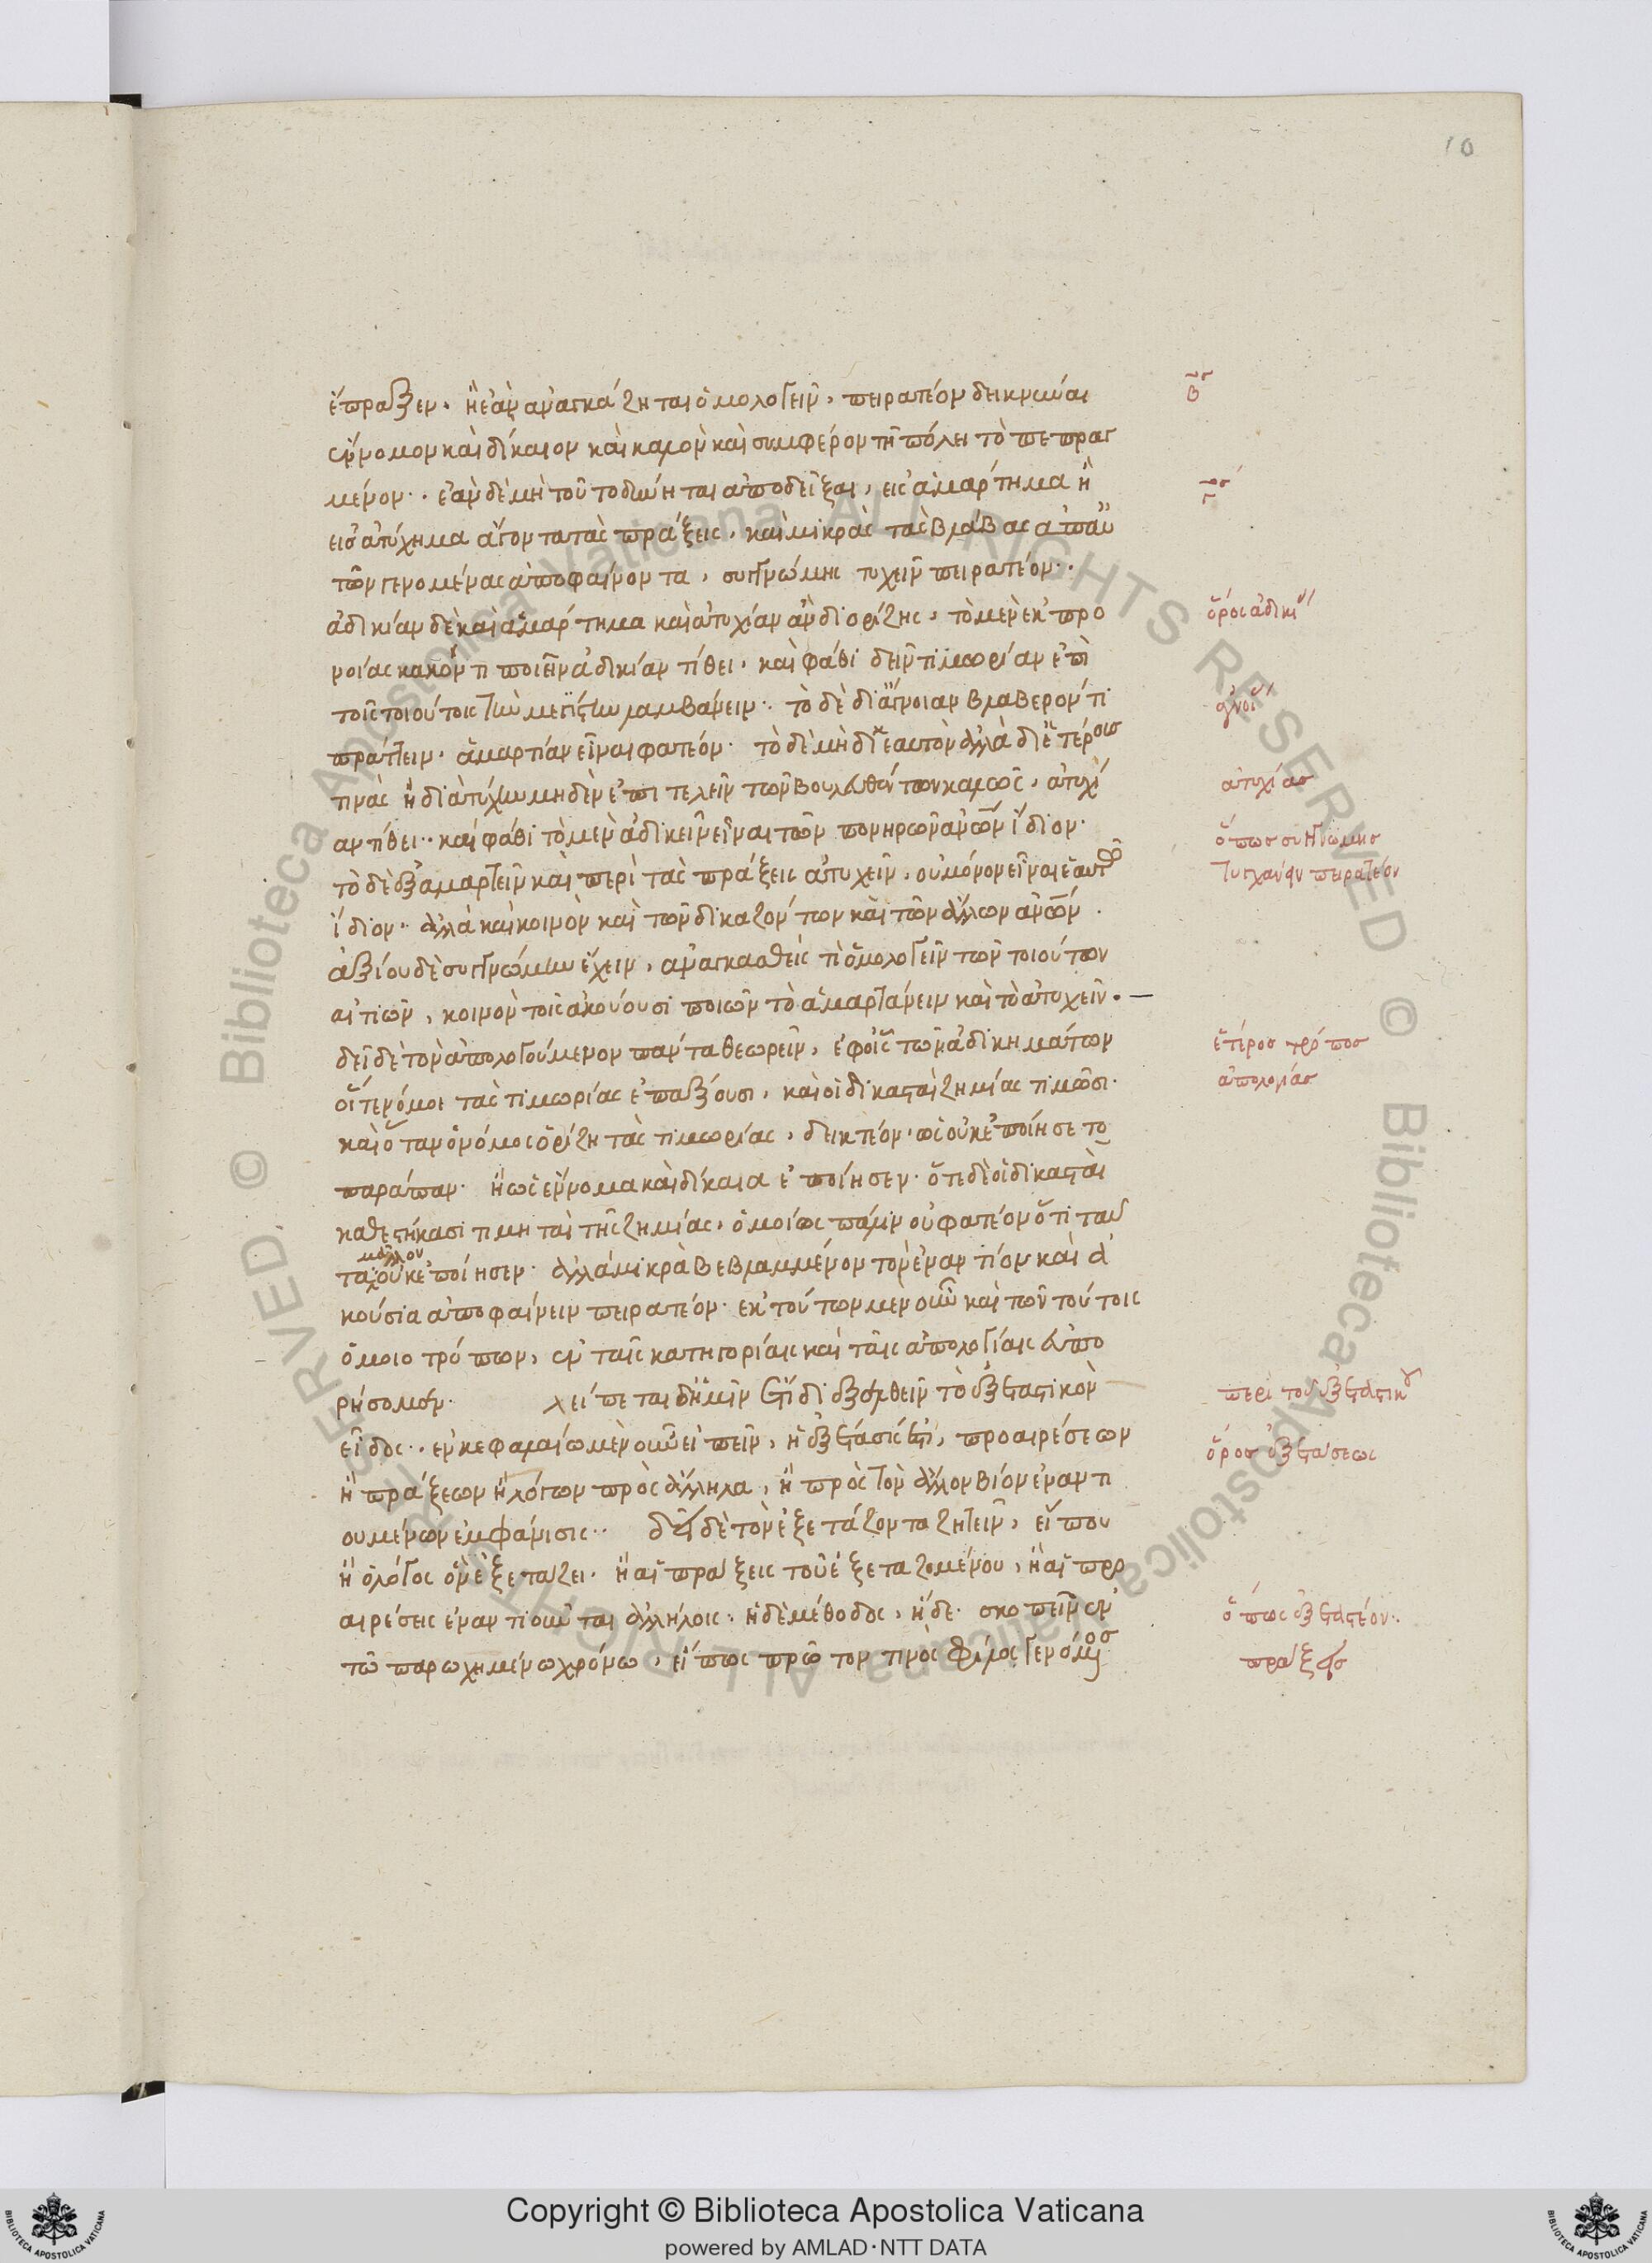 10
ἔπραξεν. ἢ ἐὰν ἀναγκάζηται ὁμολογεῖν, πειρατέον δεικνύναι
ἔννομον καὶ δίκαιον καὶ καλὸν καὶ συμφέρον τῇ πόλει τὸ πεπραγ
μένον·. ἐὰν δὲ μὴ τοῦτο δύνηται ἀποδεῖξαι, εἰς ἁμάρτημα ἢ
εἰς ἀτύχημα ἄγοντα τὰς πράξεις, καὶ μικρὰς τὰς βλάβας ἀπ' αὐ
τῶν γενομένας ἀποφαίνοντα, συγγνώμης τυχεῖν πειρατέον·.
ἀδικίαν δὲ καὶ ἁμάρτημα καὶ ἀτυχίαν ἂν διορίζῃς, τὸ μὲν ἐκ προ
νοίας κακόν τι ποιεῖν ἀδικίαν τίθει. καὶ φάθι δεῖν τιμωρίαν ἐπὶ
τοῖς τοιούτοις τὴν μεγίστην λαμβάνειν·. τὸ δὲ δι' ἄγνοιαν βλαβερόν τι
πράττειν. ἁμαρτίαν εἶναι φατέον. τὸ δὲ μὴ δι' ἑαυτὸν ἀλλὰ δι' ἑτέρους
τινὰς ἢ διὰ τύχην μηδὲν ἐπιτελεῖν τῶν βουλευθέντων καλῶς, ἀτυχί
αν τίθει·. καὶ φάθι τὸ μὲν ἀδικεῖν εἶναι τῶν πονηρῶν ἀνῶν ἴδιον.
τὸ δὲ ἐξαμαρτεῖν καὶ περὶ τὰς πράξεις ἀτυχεῖν, οὐ μόνον εἶναι ἑαυτῶ
ἴδιον·. ἀλλὰ καὶ κοινὸν καὶ τῶν δικαζόντων καὶ τῶν ἄλλων ἀνῶν.
ἀξίου δὲ συγγνώμην ἔχειν, ἀναγκασθείς τι ὁμολογεῖν τῶν τοιούτων
αἰτιῶν, κοινὸν τοῖς ἀκούουσι ποιῶν τὸ ἁμαρτάνειν καὶ τὸ ἀτυχεῖν.—
δεῖ δὲ τὸν ἀπολογούμενον πάντα θεωρεῖν, ἐφ' οἷς τῶν ἀδικημάτων
οἵ τε νόμοι τὰς τιμωρίας ἐπαξουσι, καὶ οἱ δικασταὶ ζημίας τιμῶσι.
καὶ ὅταν ὁ νόμος ὁρίζῃ τὰς τιμωρίας, δεικτέον, ὡς οὐκ ἐποίησε το
παράπαν. ἢ ὡς ἔννομα καὶ δίκαια ἐποίησεν. ὅτε δὲ οἱ δικασταὶ
καθεστήκασι τιμηταὶ τῆς ζημίας, ὁμοίως πάλιν οὐ φατέον ὅτι ταῦ
μᾶλλον
τα οὐκ ἐποίησεν. ἀλλὰ μικρὰ βεβλαμμένον τὸν ἐναντίον καὶ ἀ
κούσια ἀποφαίνειν πειρατέον. ἐκ τούτων μὲν οὖν καὶ τῶν τούτοις
ὁμοιοτρόπων, ἐν ταῖς κατηγορίαις καὶ ταῖς ἀπολογίαις εὐπο
ρήσομεν. λείπεται δ' ἡμῖν ἔτι διεξελθεῖν τὸ ἐξεταστικὸν
εἶδος·. ἐν κεφαλαίῳ μὲν οὖν εἰπεῖν, ἡ ἐξέτασίς ἐστι, προαιρέσεων
ἢ πράξεων ἢ λόγων πρὸς ἄλληλα, ἢ πρὸς τὸν ἄλλον βίον ἐναντι
ουμένων ἐμφάνισις·. δεῖ δὲ τὸν ἐξετάζοντα ζητεῖν, εἴ που
ἢ ὁ λόγος ὃν ἐξετάζει. ἢ αἱ πράξεις τοῦ ἐξεταζομένου, ἢ αἱ προ
αιρέσεις ἐναντιοῦνται ἀλλήλοις. ἡ δὲ μέθοδος, ἥδε. σκοπεῖν ἐν
τῶ παρῳχημένω χρόνω, εἴ πως πρῶτον τινὸς φίλος γενόμενος
β
γ
ὅροι ἀδικι
ἀγνοι
ἀτυχίασ
ὅπωσ συγγνώμησ
τυγχάνειν πειρατέον
ἕτεροσ τρόποσ
ἀπολογίασ
περὶ τοῦ ἐξεταστικοῦ
ὅροσ ἐξετάσεως
ὅπως ἐξεταστέον·.
πράξεισ
Copyright © Biblioteca Apostolica Vaticana
powered by AMLAD·NTT DATA